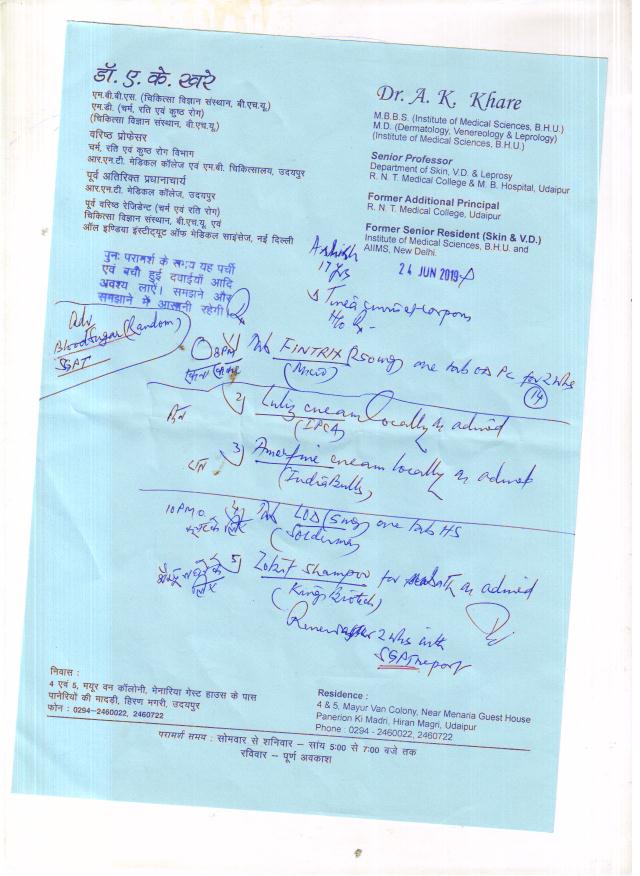 डॉ. ए. के. खरे
एम.बी.बी.एस. (चिकित्सा विज्ञान संस्थान, बी.एच.यू.)
एम.डी. (चर्म, रति एवं कुष्ठ रोग)
(चिकित्सा विज्ञान संस्थान, बी.एच.यू.)
वरिष्ठ प्रोफेसर
चर्म, रति एवं कुष्ठ रोग विभाग
आर.एन.टी. मेडिकल कॉलेज एवं एम.बी. चिकित्सालय, उदयपुर
पूर्व अतिरिक्त प्रधानाचार्य
आर.एन.टी. मेडिकल कॉलेज, उदयपुर
पूर्व वरिष्ठ रेजिडेन्ट (चर्म एवं रति रोग)
चिकित्सा विज्ञान संस्थान, बी.एच.यू. एवं
ऑल इण्डिया इंस्टीट्यूट ऑफ मेडिकल साइंसेज, नई दिल्ली
Dr. A. K. Khare
M.B.B.S. (Institute of Medical Sciences, B.H.U.)
M.D. (Dermatology, Venereology & Leprology)
(Institute of Medical Sciences, B.H.U.)
Senior Professor
Department of Skin, V.D. & Leprosy
R. N. T. Medical College & M. B. Hospital, Udaipur
Former Additional Principal
R. N. T. Medical College, Udaipur
Former Senior Resident (Skin & V.D.)
Institute of Medical Sciences, B.H.U. and
AIIMS, New Delhi.
पुनः परामर्श के समय यह पर्ची
एवं बची हुई दवाईयाँ आदि
अवश्य लाएं। समझने और
समझाने में आसानी रहेगी।
Ashish
17 yrs
24 JUN 2019
Tinea
H/o Rx -
Adv
Blood Sugar (Random)
SGPT
8PM
1) Tab FINTRIX (250mg) one tab OD PC for 2 wks
(Micro)
(14)
2) Luliz cream locally as advised
(IPCA)
3) Amerfine cream locally as advised
(IndiaBulls)
10PM
4) Tab LOD (5mg) one tab HS
5) shampoo for as advised
(Kings Biotech)
Review after 2 wks with
SGPT report
निवास :
4 एवं 5, मयूर वन कॉलोनी, मेनारिया गेस्ट हाउस के पास
पानेरियों की मादड़ी, हिरण मगरी, उदयपुर
फोन : 0294-2460022, 2460722
Residence :
4 & 5, Mayur Van Colony, Near Menaria Guest House
Panerion Ki Madri, Hiran Magri, Udaipur
Phone : 0294 - 2460022, 2460722
परामर्श समय : सोमवार से शनिवार – सांय 5:00 से 7:00 बजे तक
रविवार – पूर्ण अवकाश